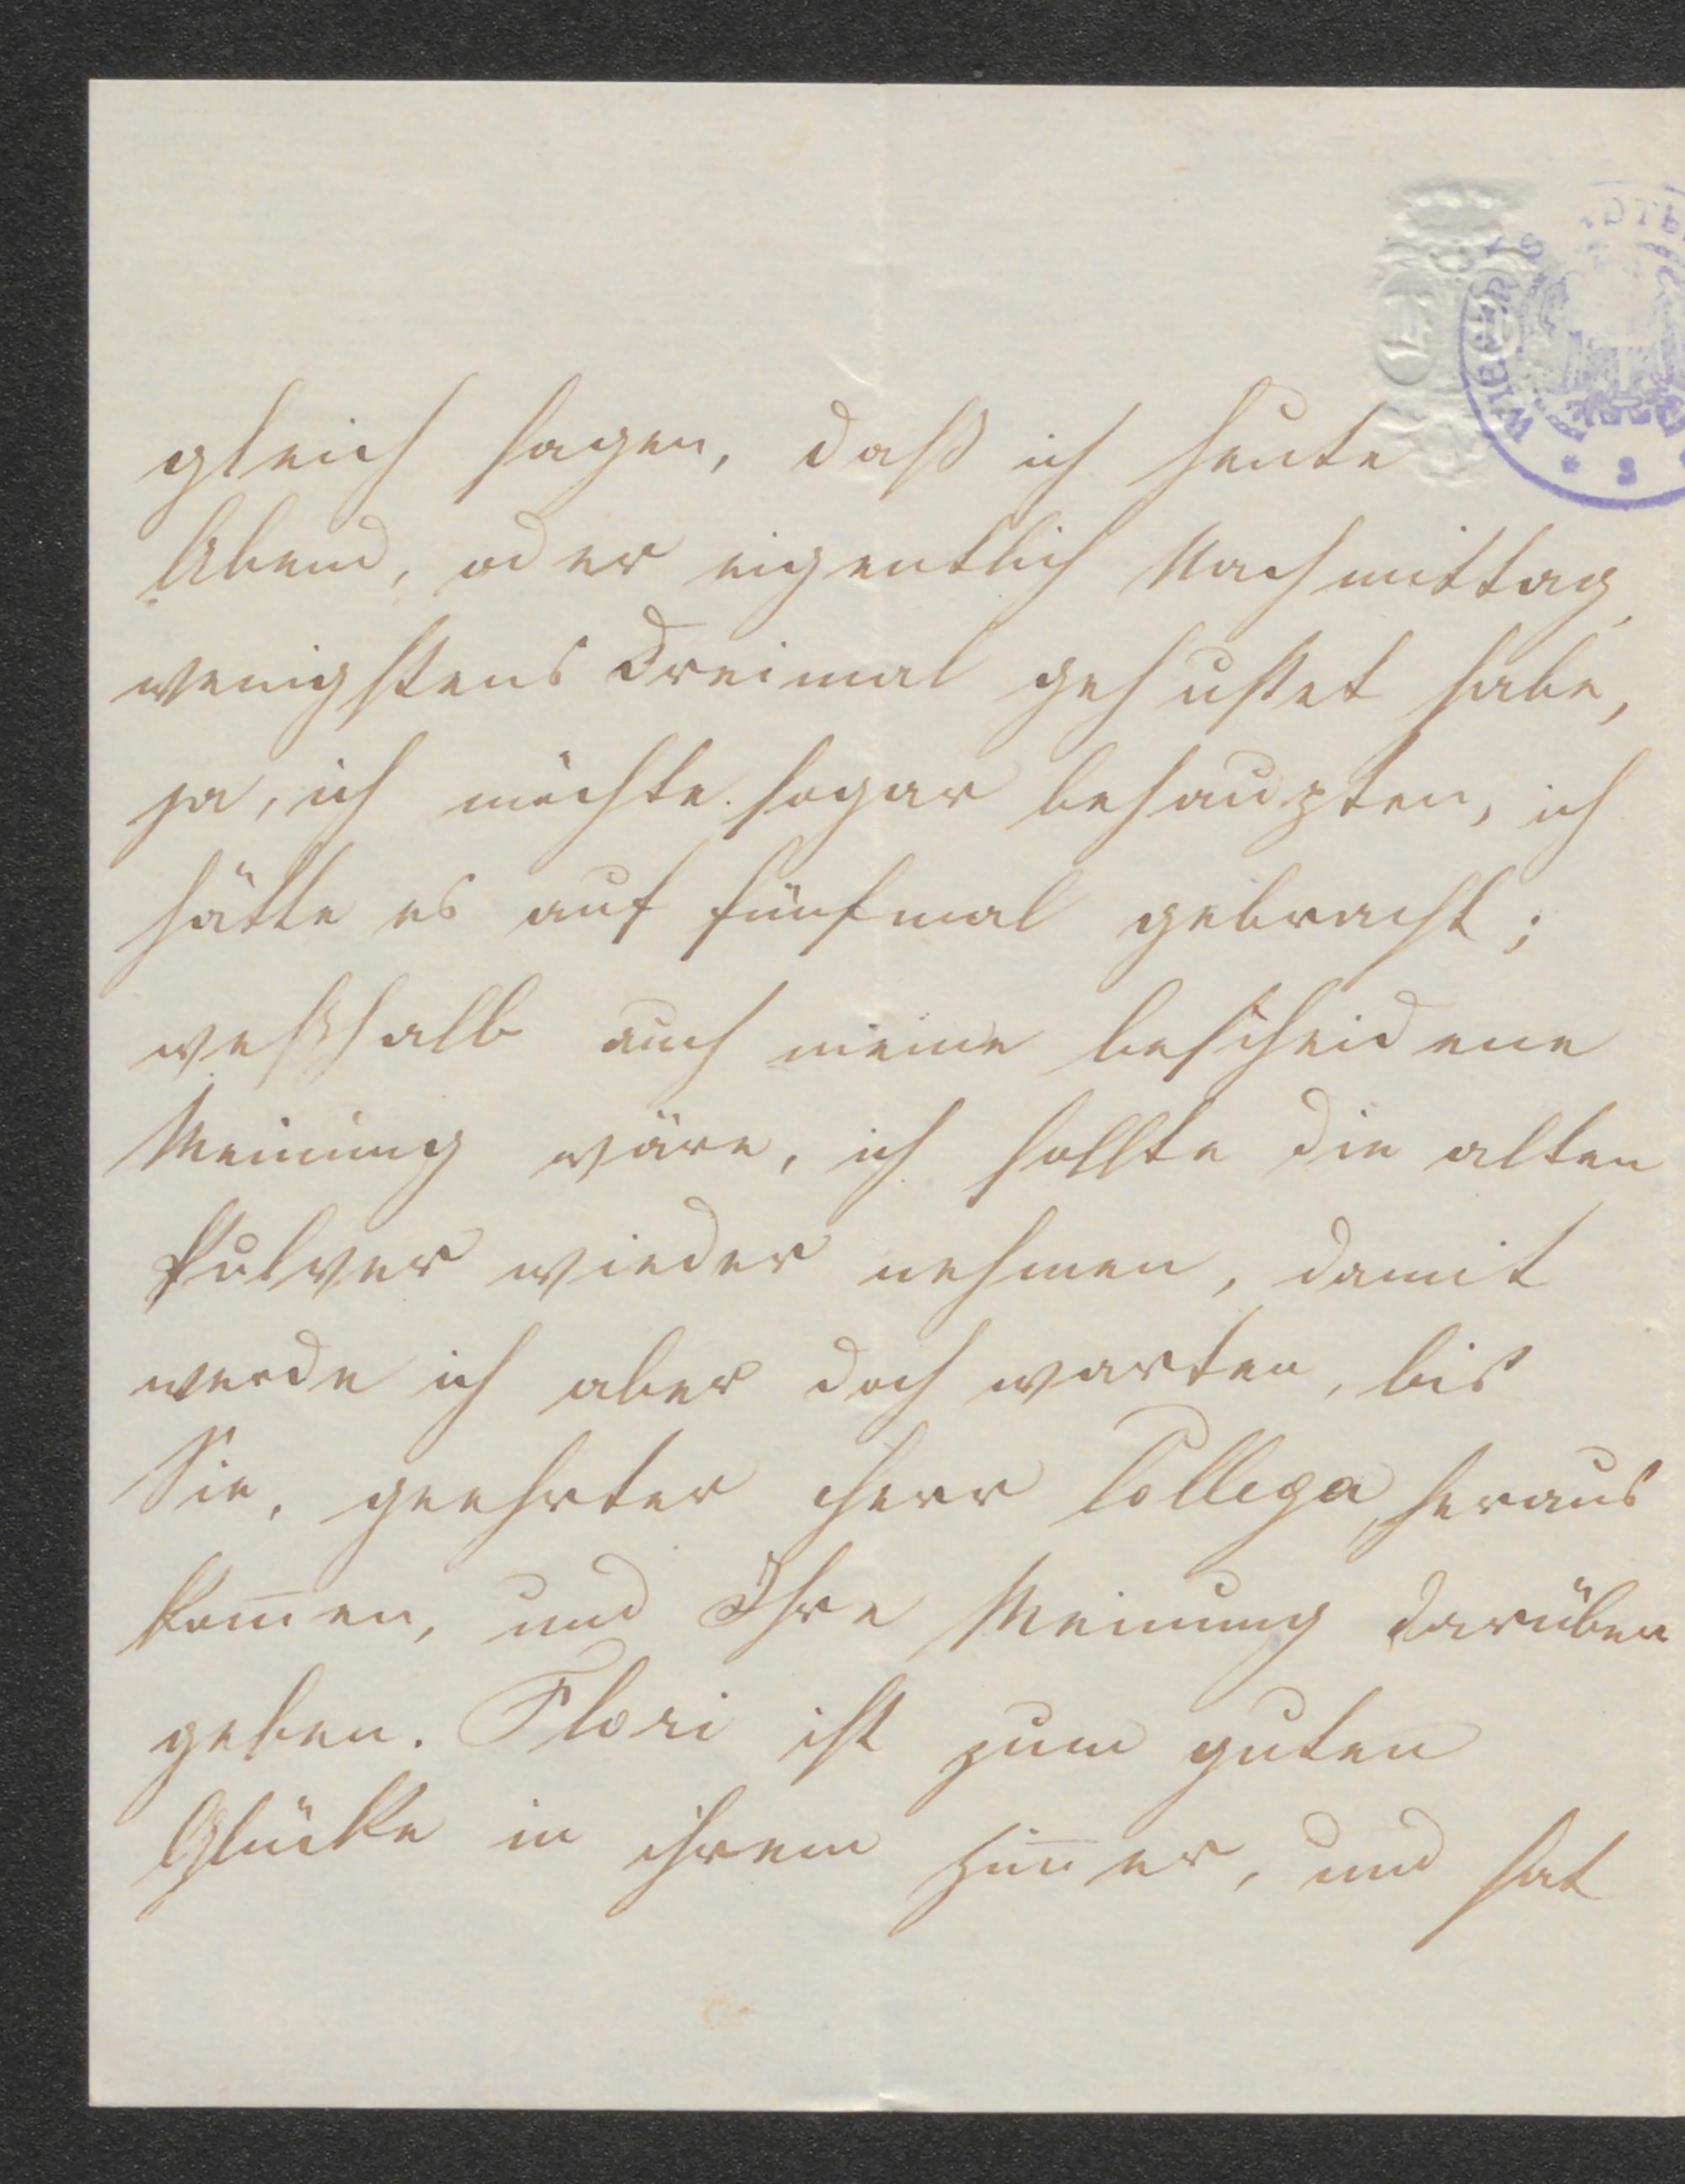 gleich sagen, daß ich heute
Abend, oder eigentlich Nachmittag,
wenigstens dreimal gehustet habe,
ja, ich möchte sogar behaupten, ich
hätte es auf fünfmal gebracht;
weßhalb auch meine bescheidene
Meinung wäre, ich sollte die alten
Pulver wieder nehmen, damit
werde ich aber doch warten, bis
Sie, geehrter Herr Collega, heraus
kom̅en, und Ihre Meinung darüber
geben. Flori ist zum guten
Glücke in ihrem Zim̅er, und hat